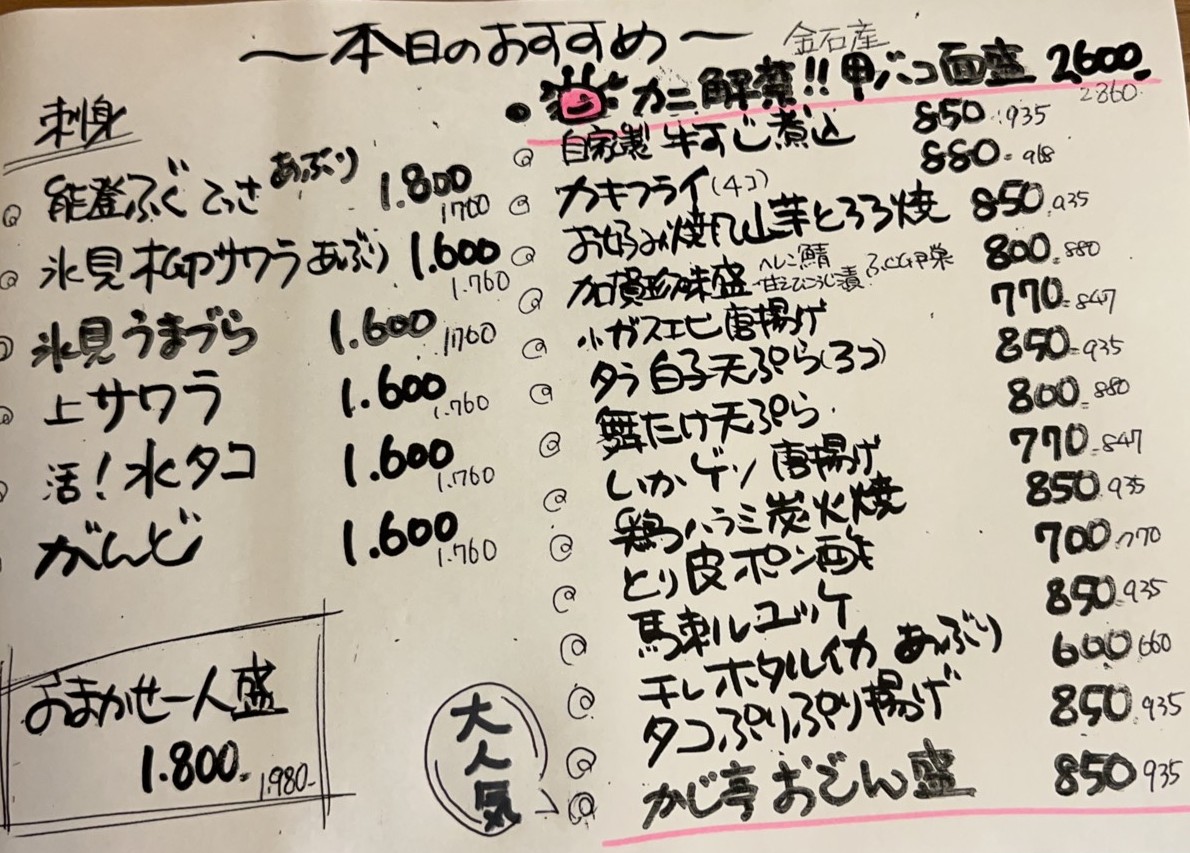 〜本日のおすすめ〜
金石産
カニ解禁!! 甲バコ面盛 2600.
2860
刺身
能登ふぐ てっさ あぶり 1.800
1700
氷見 サワラ あぶり 1.600
1.760
氷見 うまづら 1.600
1760
上サワラ 1.600
1.760
活!水タコ 1.600
1.760
がんど 1.600
1.760
おまかせ一人盛
1.800-
1.980-
自家製 牛すじ煮込 850 935
カキフライ(4コ) 880 968
お好み焼風山芋とろろ焼 850 935
加賀珍味盛 へしこ鯖 甘えびこうじ漬 ふぐ 800 880
小ガスエビ唐揚げ 770 847
タラ白子天ぷら(3コ) 850 935
舞たけ天ぷら 800 880
いかゲソ唐揚げ 770 847
鶏ハラミ炭火焼 850 935
とり皮ポン酢 700 770
馬刺ルユッケ 850 935
干しホタルイカ あぶり 600 660
タコぷりぷり揚げ 850 935
大人気
かじ亭おでん盛 850 935